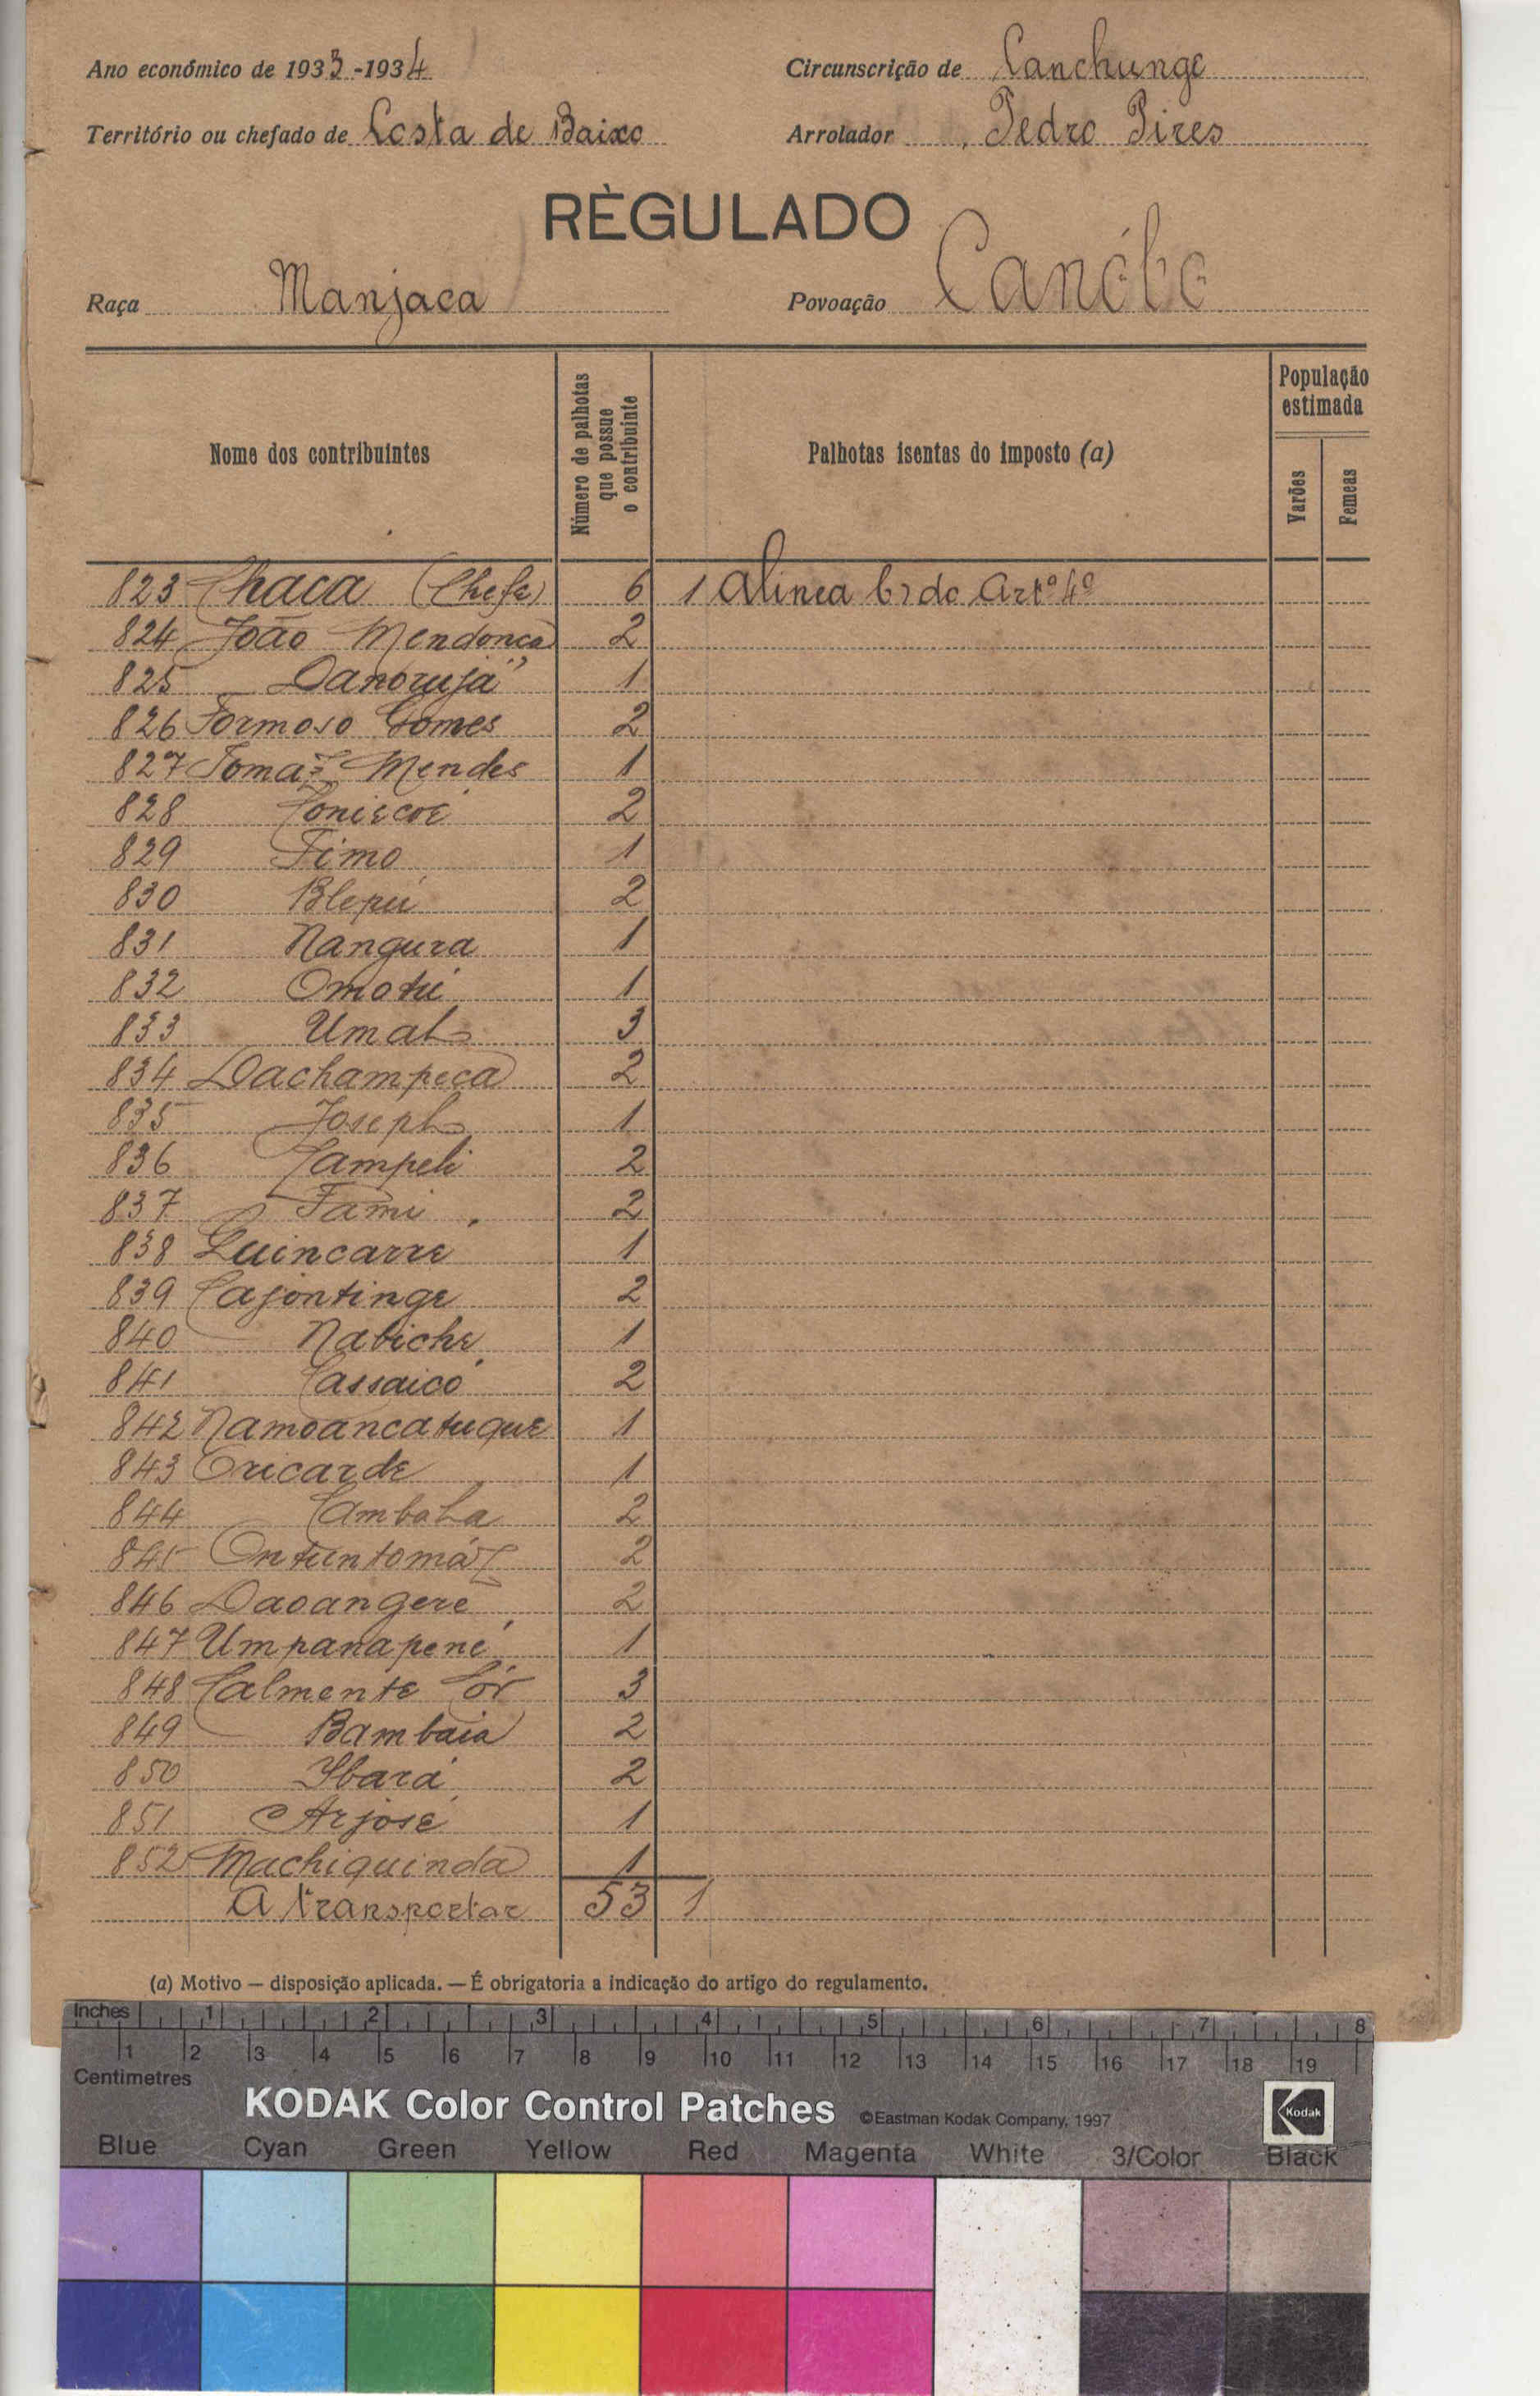 Ano económico de 1933-1934
Circunscrição de Canchungo
Território ou chefado de Costa de Baixo
Arrolador Pedro Pires
RÈGULADO
Raça Manjaca
Povoação Canóbo
Nome dos contribuintes
Número de palhotas que possue o contribuinte
Palhotas isentas do imposto (a)
População estimada
Varões
Femeas
823 Chaca (Chefe) 6 1 Alinea b) do Artº 4º
824 João Mendonca 2
825 Danoruja 1
826 Formoso Gomes 2
827 Tomaz Mendes 1
828 Coniscoé 2
829 Timo 1
830 Blepú 2
831 Nangura 1
832 Omotú 1
833 Umal 3
834 Dachampeca 2
835 Joseph 1
836 Campeli 2
837 Fami 2
838 Quincarré 1
839 Cajontinge 2
840 Nabiche 1
841 Cassaicó 2
842 Namoancatuque 1
843 Oricarde 1
844 Cambola 2
845 Ontuntomáz 2
846 Daoangere 2
847 Umpanapené 1
848 Calmente Cór 3
849 Bambaia 2
850 Ibará 2
851 Arjosé 1
852 Machiquinda 1
A transportar 53 1
(a) Motivo — disposição aplicada. — É obrigatoria a indicação do artigo do regulamento.
Inches 1 2 3 4 5 6 7 8
1 2 3 4 5 6 7 8 9 10 11 12 13 14 15 16 17 18 19
Centimetres
KODAK Color Control Patches ©Eastman Kodak Company, 1997 Kodak
Blue Cyan Green Yellow Red Magenta White 3/Color Black